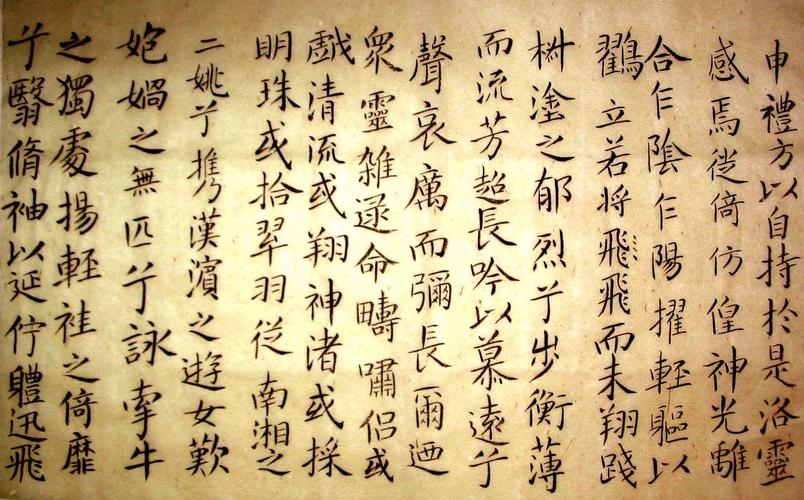 申禮方以自持於是洛靈
感焉徙倚仿偟神光離
合乍陰乍陽擢輕軀以
鸖立若将飛飛而未翔踐
椒塗之郁烈兮步衡薄
而流芳超長吟以慕遠兮
聲哀厲而彌長爾迺
衆靈雑遝命疇嘯侣或
戱清流或翔神渚或採
明珠或拾翠羽從南湘之
二姚兮攜漢濱之遊女歎
匏媧之無匹兮詠牽牛
之獨處揚輕袿之倚靡
兮翳脩袖以延佇軆迅飛